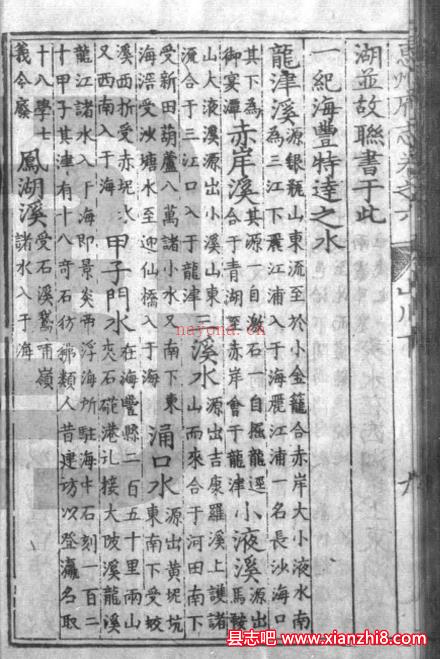 惠州府志卷之六
山川下
九
湖並故聯書于此
一紀海豐特達之水
龍津溪源銀瓶山東流至於小金籠合赤岸大小液水南
為三江下麗江浦入于海麗江浦一名長沙海口
其下為赤岸溪其源一自激石一自掘龍逕小液溪源出
御宴潭合于青湖至赤岸會于龍津馬鞍
山大液溪源出小溪山東三溪水源出吉康羅溪上護諸
流合于三江口入于龍津山而來合于河田南下
受新田葫蘆八萬諸小水又南下東涌口水源出黃坭坑
海滘受沙塘水至迎仙橋入于海東南下受蛟
溪西折受赤坭水甲子門水在海豐縣二百五十里兩山
又西南入于海夾石磋港北接大陂溪龍溪
龍江諸水入于海即景炎帝浮海所駐海中石刻一百二
十甲子其津有十八奇石彷彿類人昔建坊以登瀛名取
十八學士鳳湖溪受石溪鵞甫嶺
義今廢諸水入于海
nayona.cn
县志吧-www.xianzhi8.com